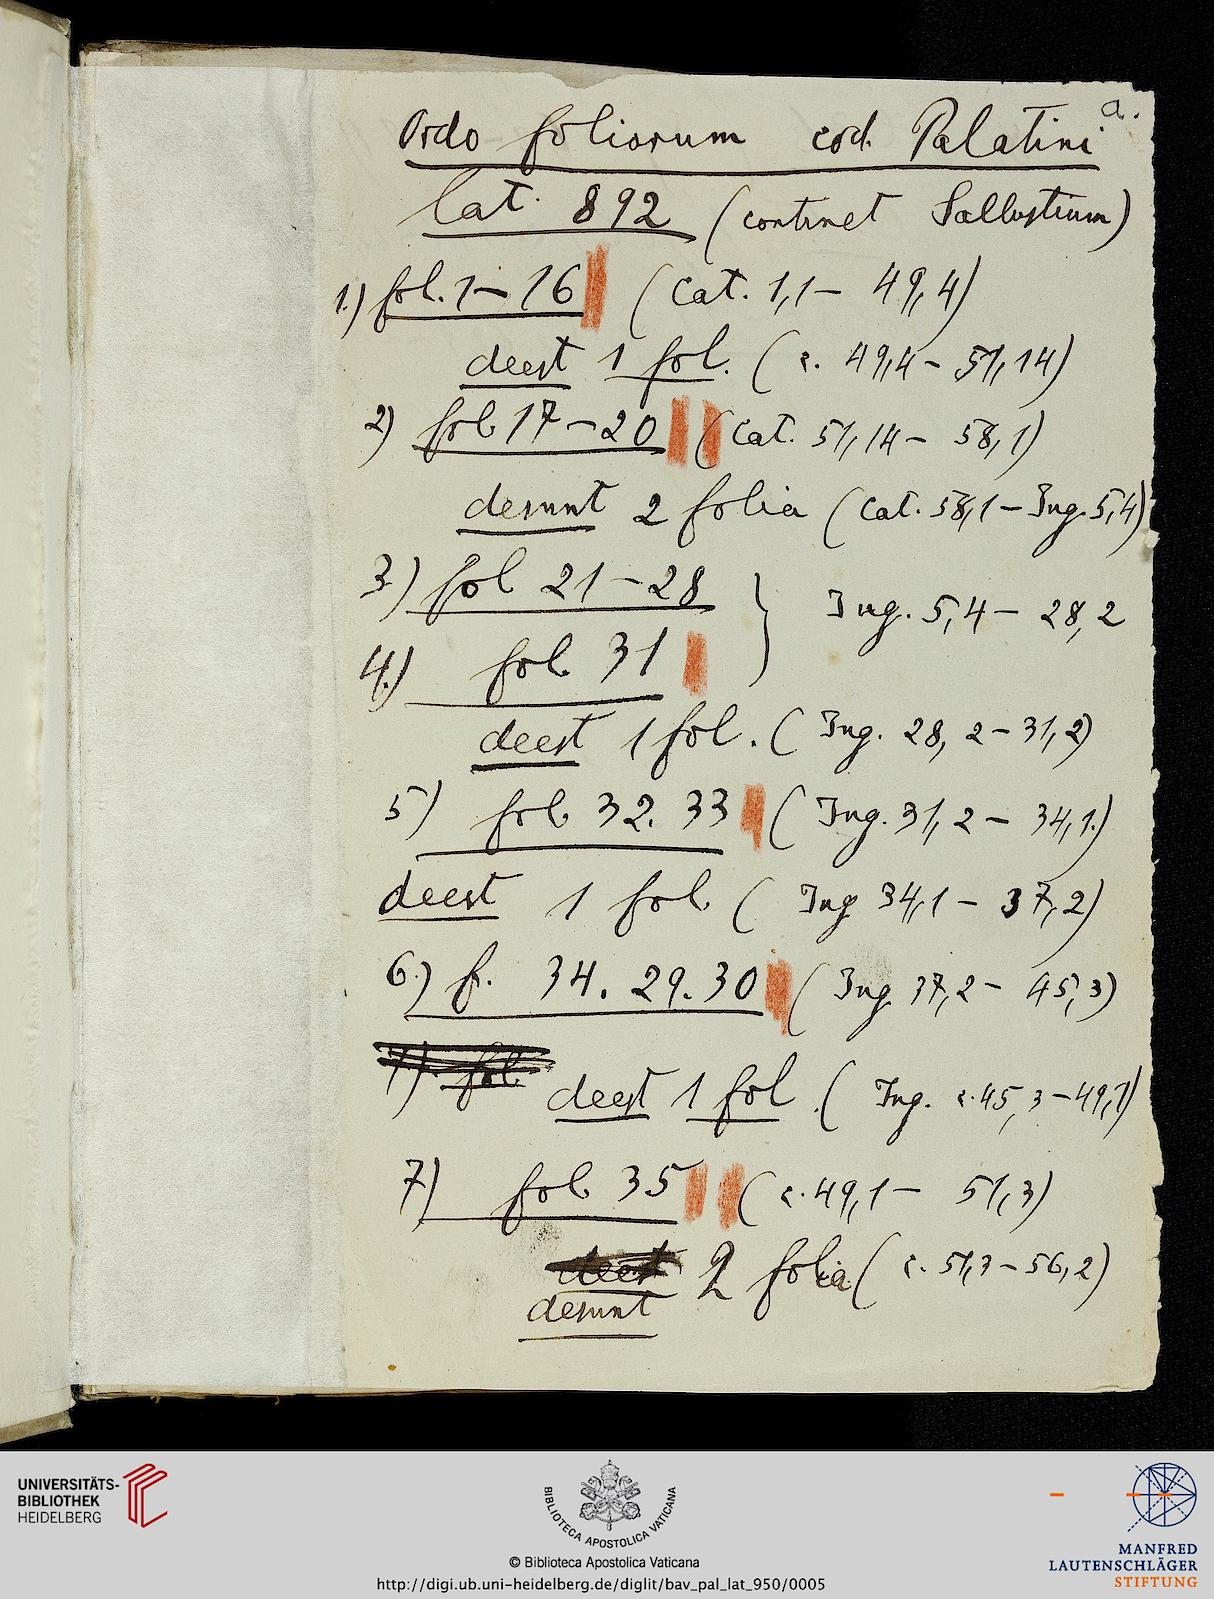 a.
Ordo foliorum cod. Palatini
lat. 892 (continet Sallustium)
1.) fol. 1 – 16 (Cat. 1,1 – 49,4)
deest 1 fol. (c. 49,4 – 51,14)
2) fol 17 – 20 (Cat. 51,14 – 58,1)
desunt 2 folia (Cat. 58,1 – Iug. 5,4)
3.) fol 21 – 28 } Iug. 5,4 – 28,2
4.) fol. 31
deest 1 fol. (Iug. 28,2 – 31,2)
5) fol. 32. 33 (Iug. 31,2 – 34,1.)
deest 1 fol. (Iug 34,1 – 37,2)
6.) f. 34. 29. 30 (Iug 37,2 – 45,3)
7) fol. deest 1 fol. (Iug. c. 45,3 – 49,1)
7) fol. 35 (c. 49,1 – 51,3)
deest 2 folia (c. 51,3 – 56,2)
desunt
UNIVERSITÄTS-
BIBLIOTHEK
HEIDELBERG
BIBLIOTECA APOSTOLICA VATICANA
© Biblioteca Apostolica Vaticana
http://digi.ub.uni-heidelberg.de/diglit/bav_pal_lat_950/0005
MANFRED
LAUTENSCHLÄGER
STIFTUNG